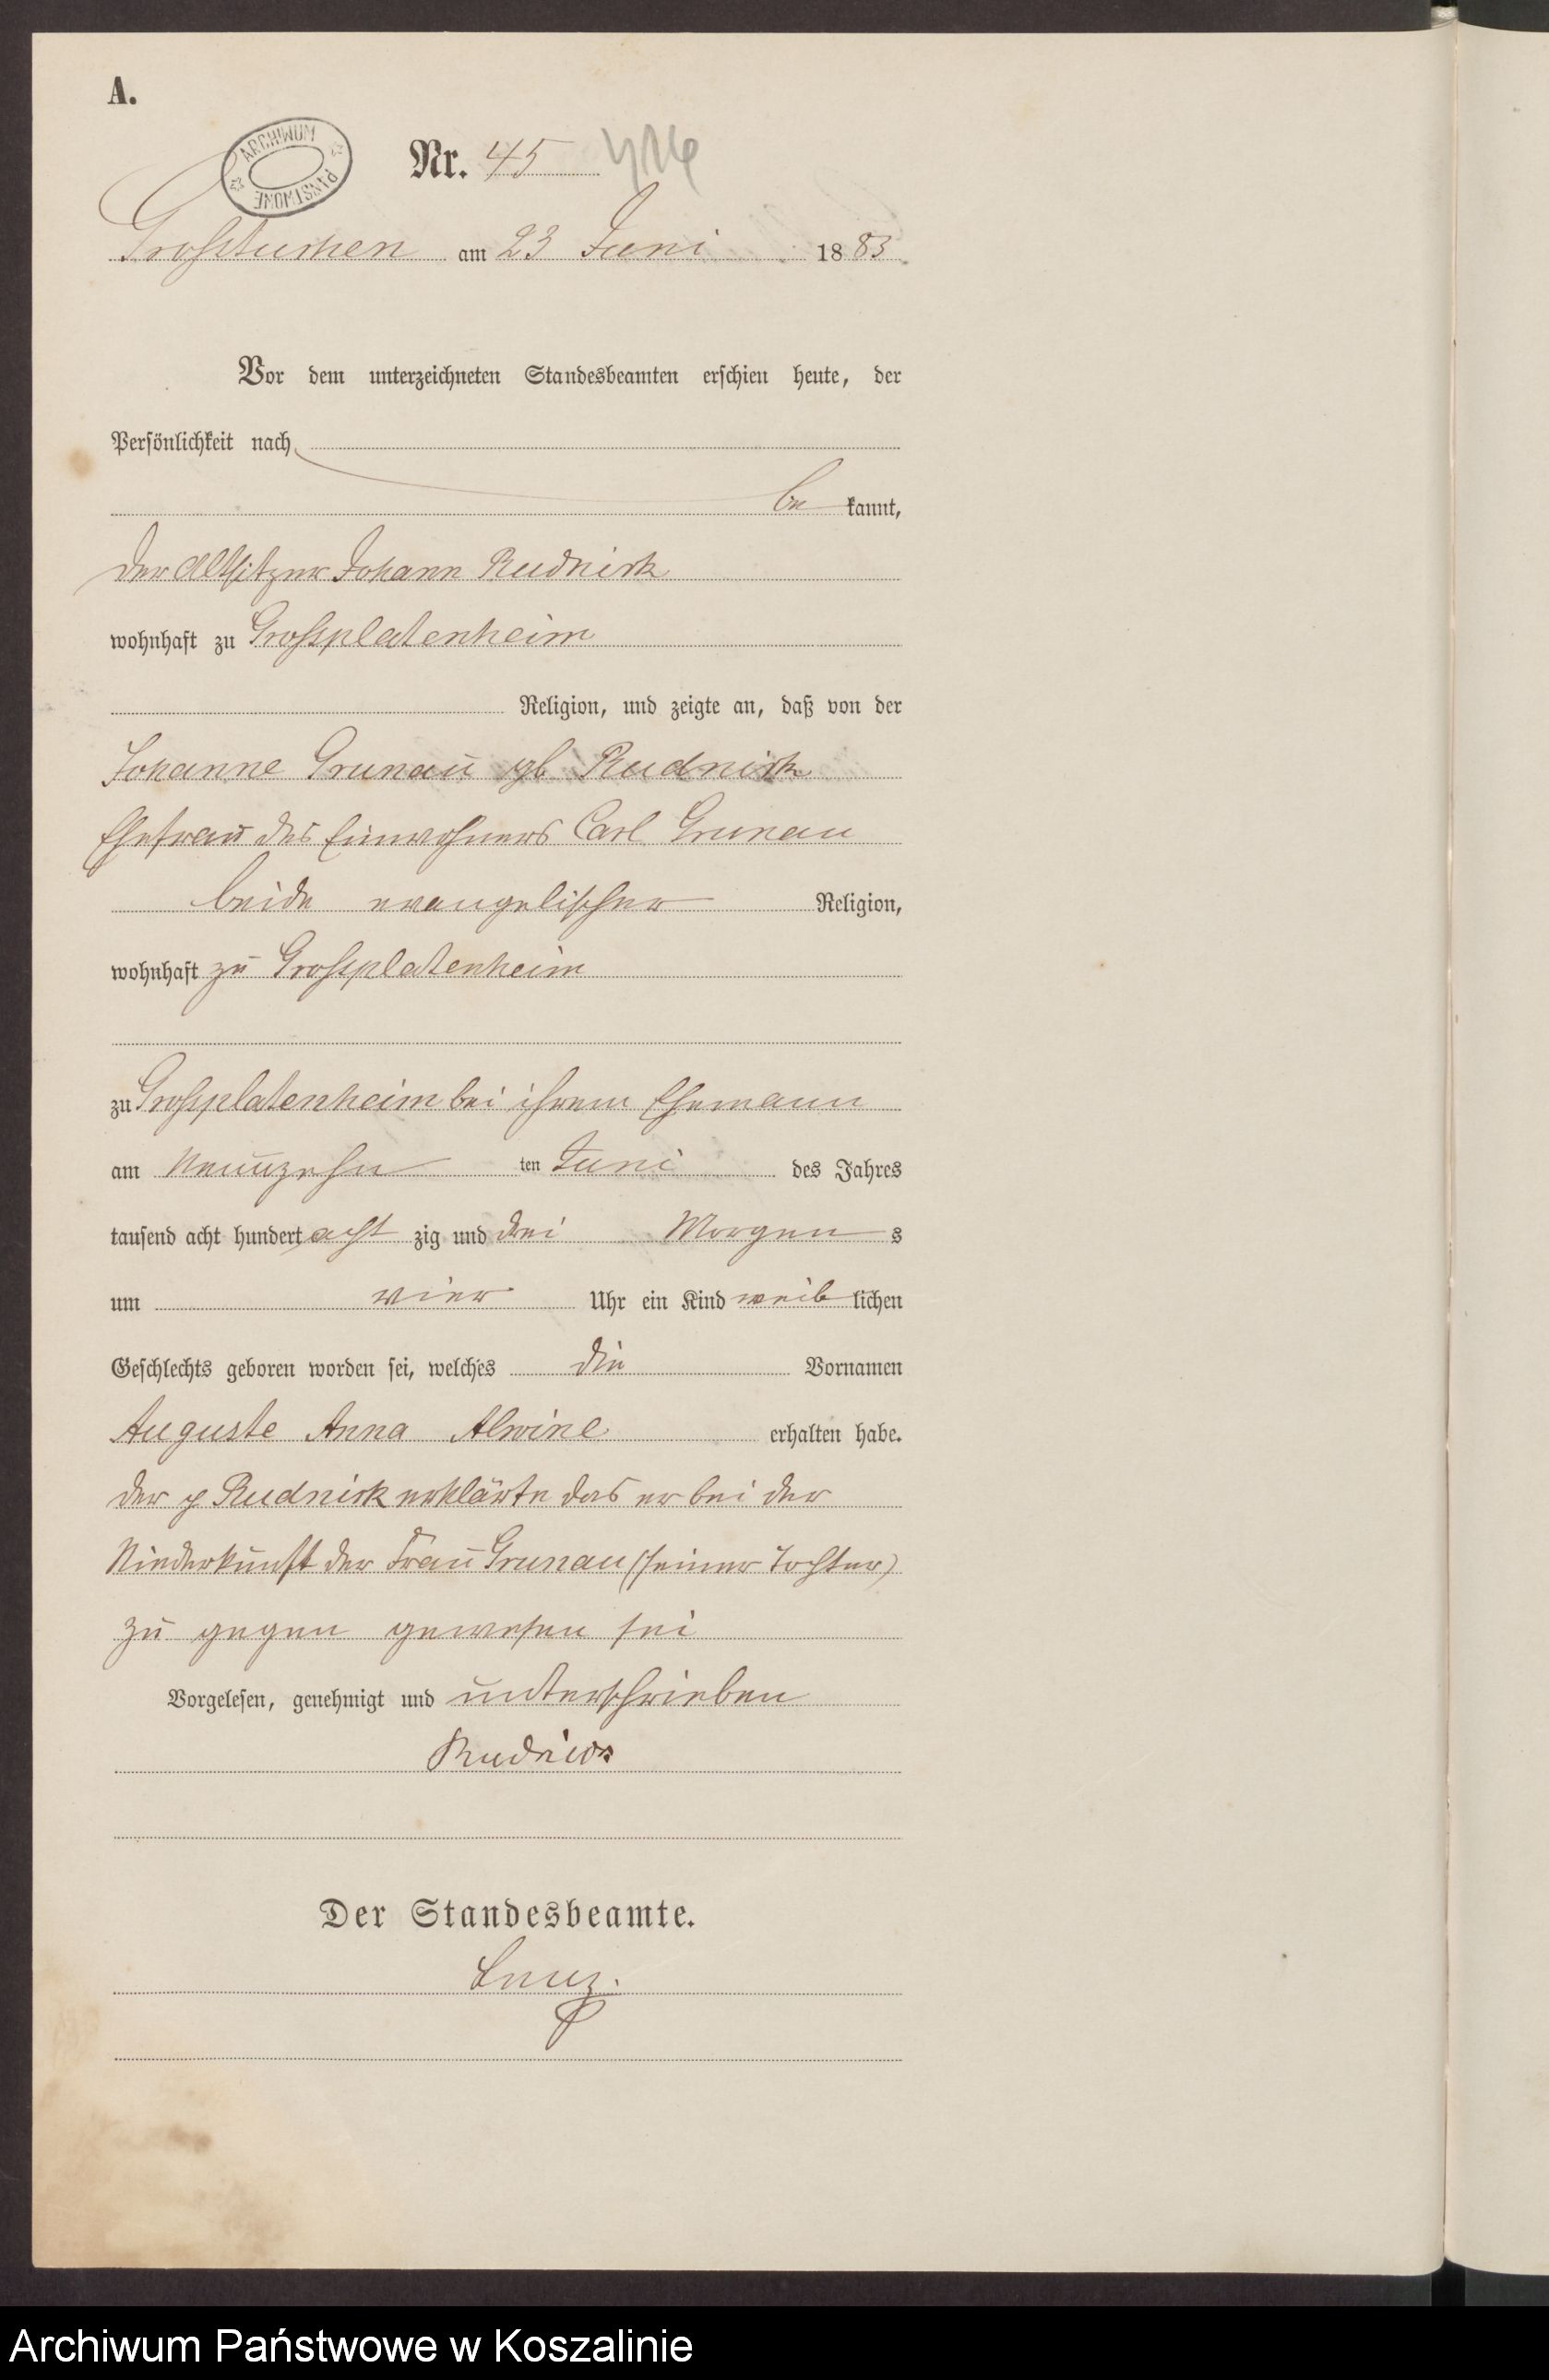 A.
ARCHIWUM PAŃSTWOWE
Nr. 45
Grosstuchen am 23 Juni 1883.
Vor dem unterzeichneten Standesbeamten erschien heute, der
Persönlichkeit nach
be kannt,
der Altsitzer Johann Rudnick
wohnhaft zu Grossplatenheim
Religion, und zeigte an, daß von der
Johanne Grunau geb Rudnick
Ehefrau des Einwohners Carl Grunau
beide evangelischer Religion,
wohnhaft zu Grossplatenheim
zu Grossplatenheim bei ihrem Ehemann
am Neunzehn ten Juni des Jahres
tausend acht hundert acht zig und drei Morgen s
um vier Uhr ein Kind weib lichen
Geschlechts geboren worden sei, welches die Vornamen
Auguste Anna Alwine erhalten habe.
der p Rudnick erklärte das er bei der
Niederkunft der Frau Grunau (seiner Tochter)
zu gegen gewesen sei
Vorgelesen, genehmigt und unterschrieben
Rudnick
Der Standesbeamte.
Archiwum Państwowe w Koszalinie